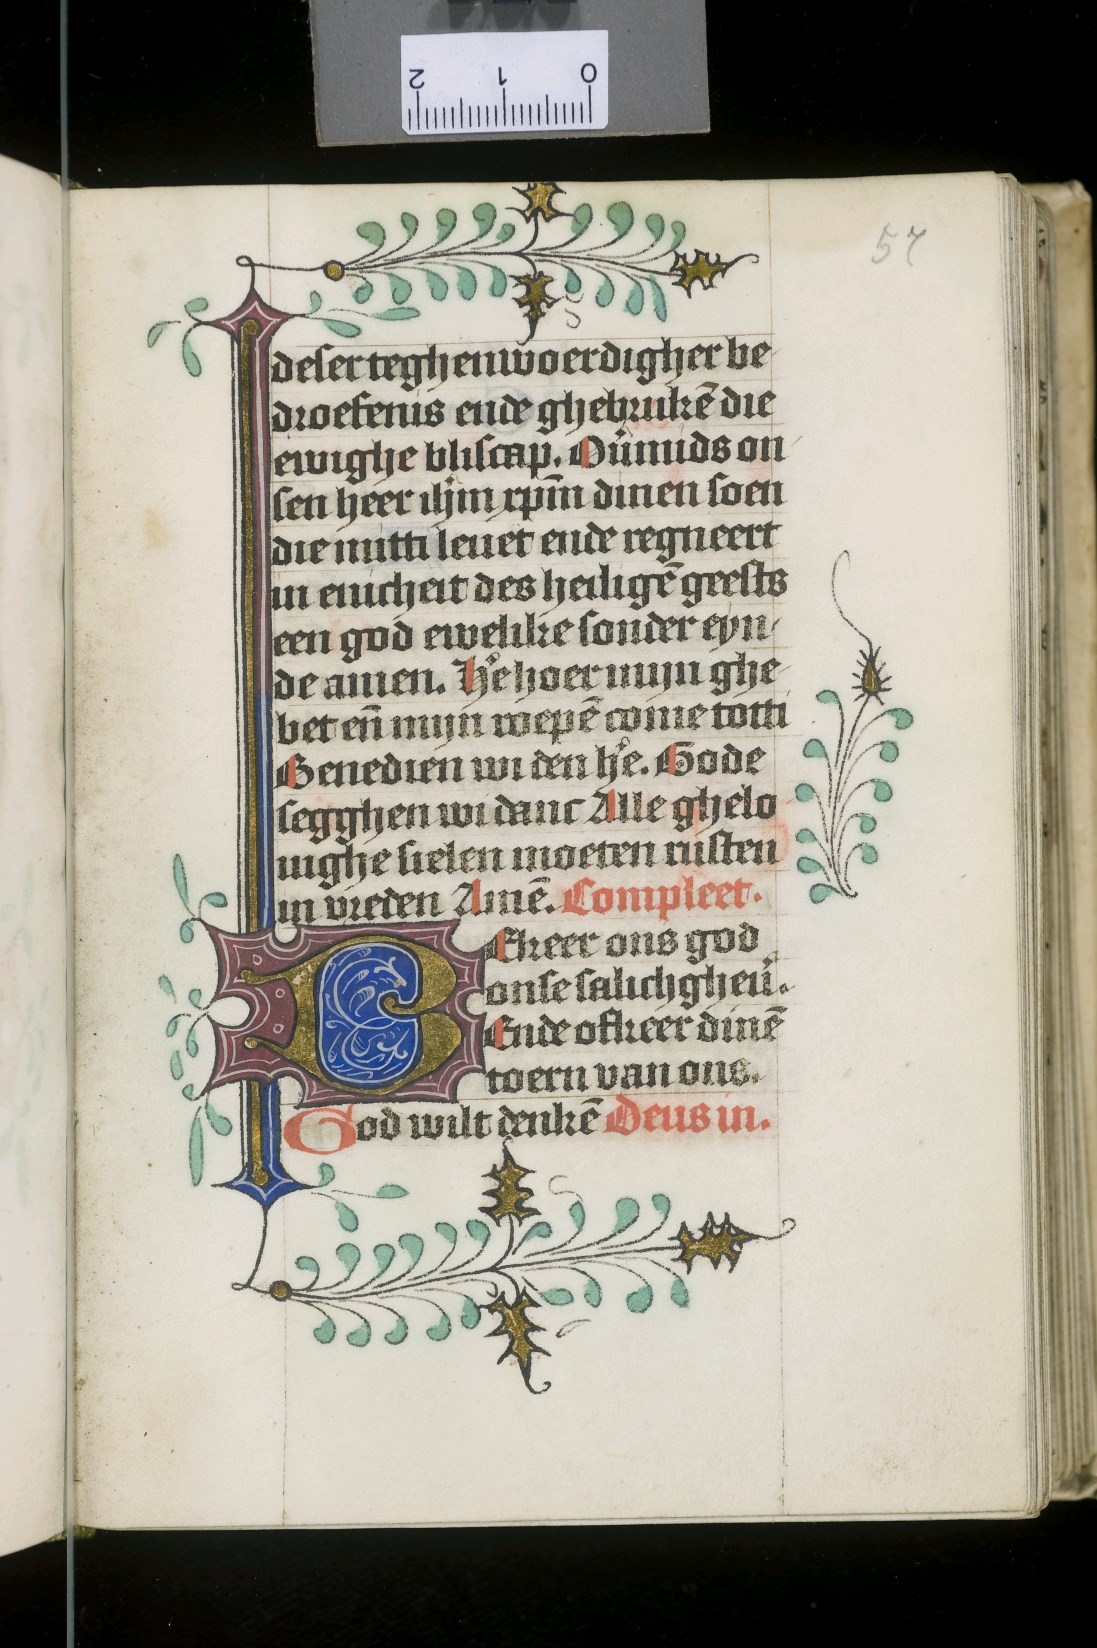 2 1 0
57
deser teghenwoerdigher be
droefenis ende ghebrukē die
ewighe bliscap. Oūmids on
sen heer ihm xpm̄ dinen soen
die mitti leuet ende regneert
in enicheit des heiligē geests
een god ewelike sonder eyn
de amen. H̄e hoer mijn ghe
bet en̄ mijn roepē come totti
Benedien wi den h̄e. Gode
segghen wi danc Alle ghelo
uighe sielen moeten rusten
in vreden Amē. Compleet.
BEkeer ons god
onse salichgheu̅.
Ende ofkeer dinē
toern van ons.
God wilt denkē Deus in.